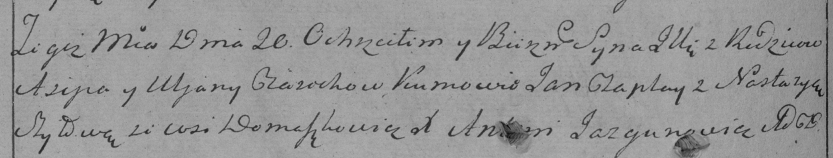 Tegoż Mca Dnia 20. Ochrzciłem y Bierzm Syna Illię z Rodzicow
Asipa y Uljany Czarochow Kumowie Jan Czaplay z Nastazyą
Szyłową ze wsi Domaszkowicz X Antoni Jazgunowicz